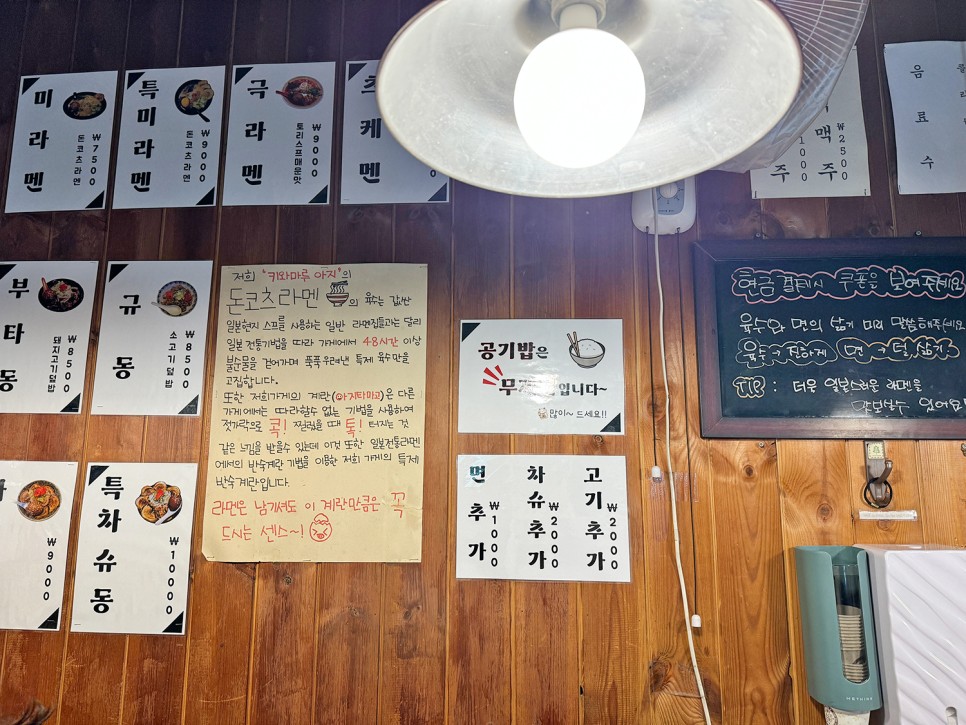 미라멘
돈코츠라멘
₩7500
특미라멘
돈코츠라멘
₩9000
극라멘
토리스프매운맛
₩9000
츠케멘
맥주
₩2500
음료수
부타동
돼지고기덮밥
₩8500
규동
소고기덮밥
₩8500
₩9000
특차슈동
₩10000
저희 "키와마루 아지"의
돈코츠라멘의 육수는 값싼
일본현지 스프를 사용하는 일반 라멘집들과는 달리
일본 전통기법을 따라 가게에서 48시간 이상
불순물을 걷어가며 푹푹 우려낸 특제 육수만을
고집합니다.
또한 저희가게의 계란(아지타마고)은 다른
가게에서는 따라할수 없는 기법을 사용하여
젓가락으로 콕! 찔렀을 때 툭! 터지는 것
같은 느낌을 받을수 있는데 이것 또한 일본전통라멘
에서의 반숙계란 기법을 이용한 저희 가게의 특제
반숙계란입니다.
라멘은 남기셔도 이 계란만큼은 꼭
드시는 센스~!
공기밥은
무 입니다~
많이~ 드세요!!
면추가
₩1000
차슈추가
₩2000
고기추가
₩2000
현금 결제시 쿠폰을 보여주세요
육수와 면의 삶기 미리 말씀해주세요
육수→진하게 면→덜 삶기
TIP : 더욱 일본스러운 라멘을
맛보실수 있어요!